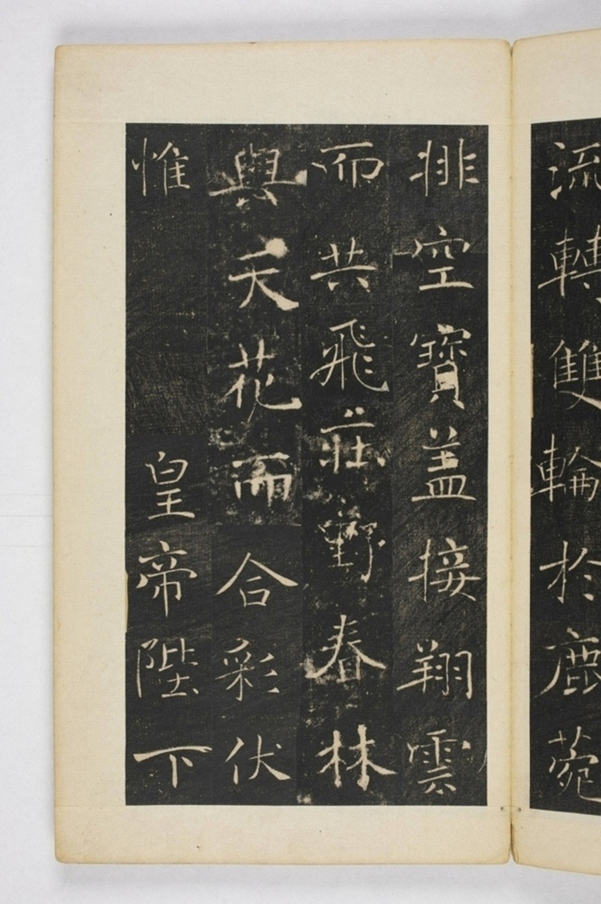 流轉雙輪於鹿菀
排空寶蓋接翔雲
而共飛莊野春林
與天花而合彩伏
惟 皇帝陛下